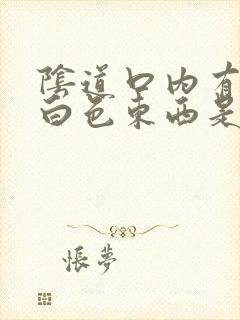 陰道口內有
白色東西是
悵夢